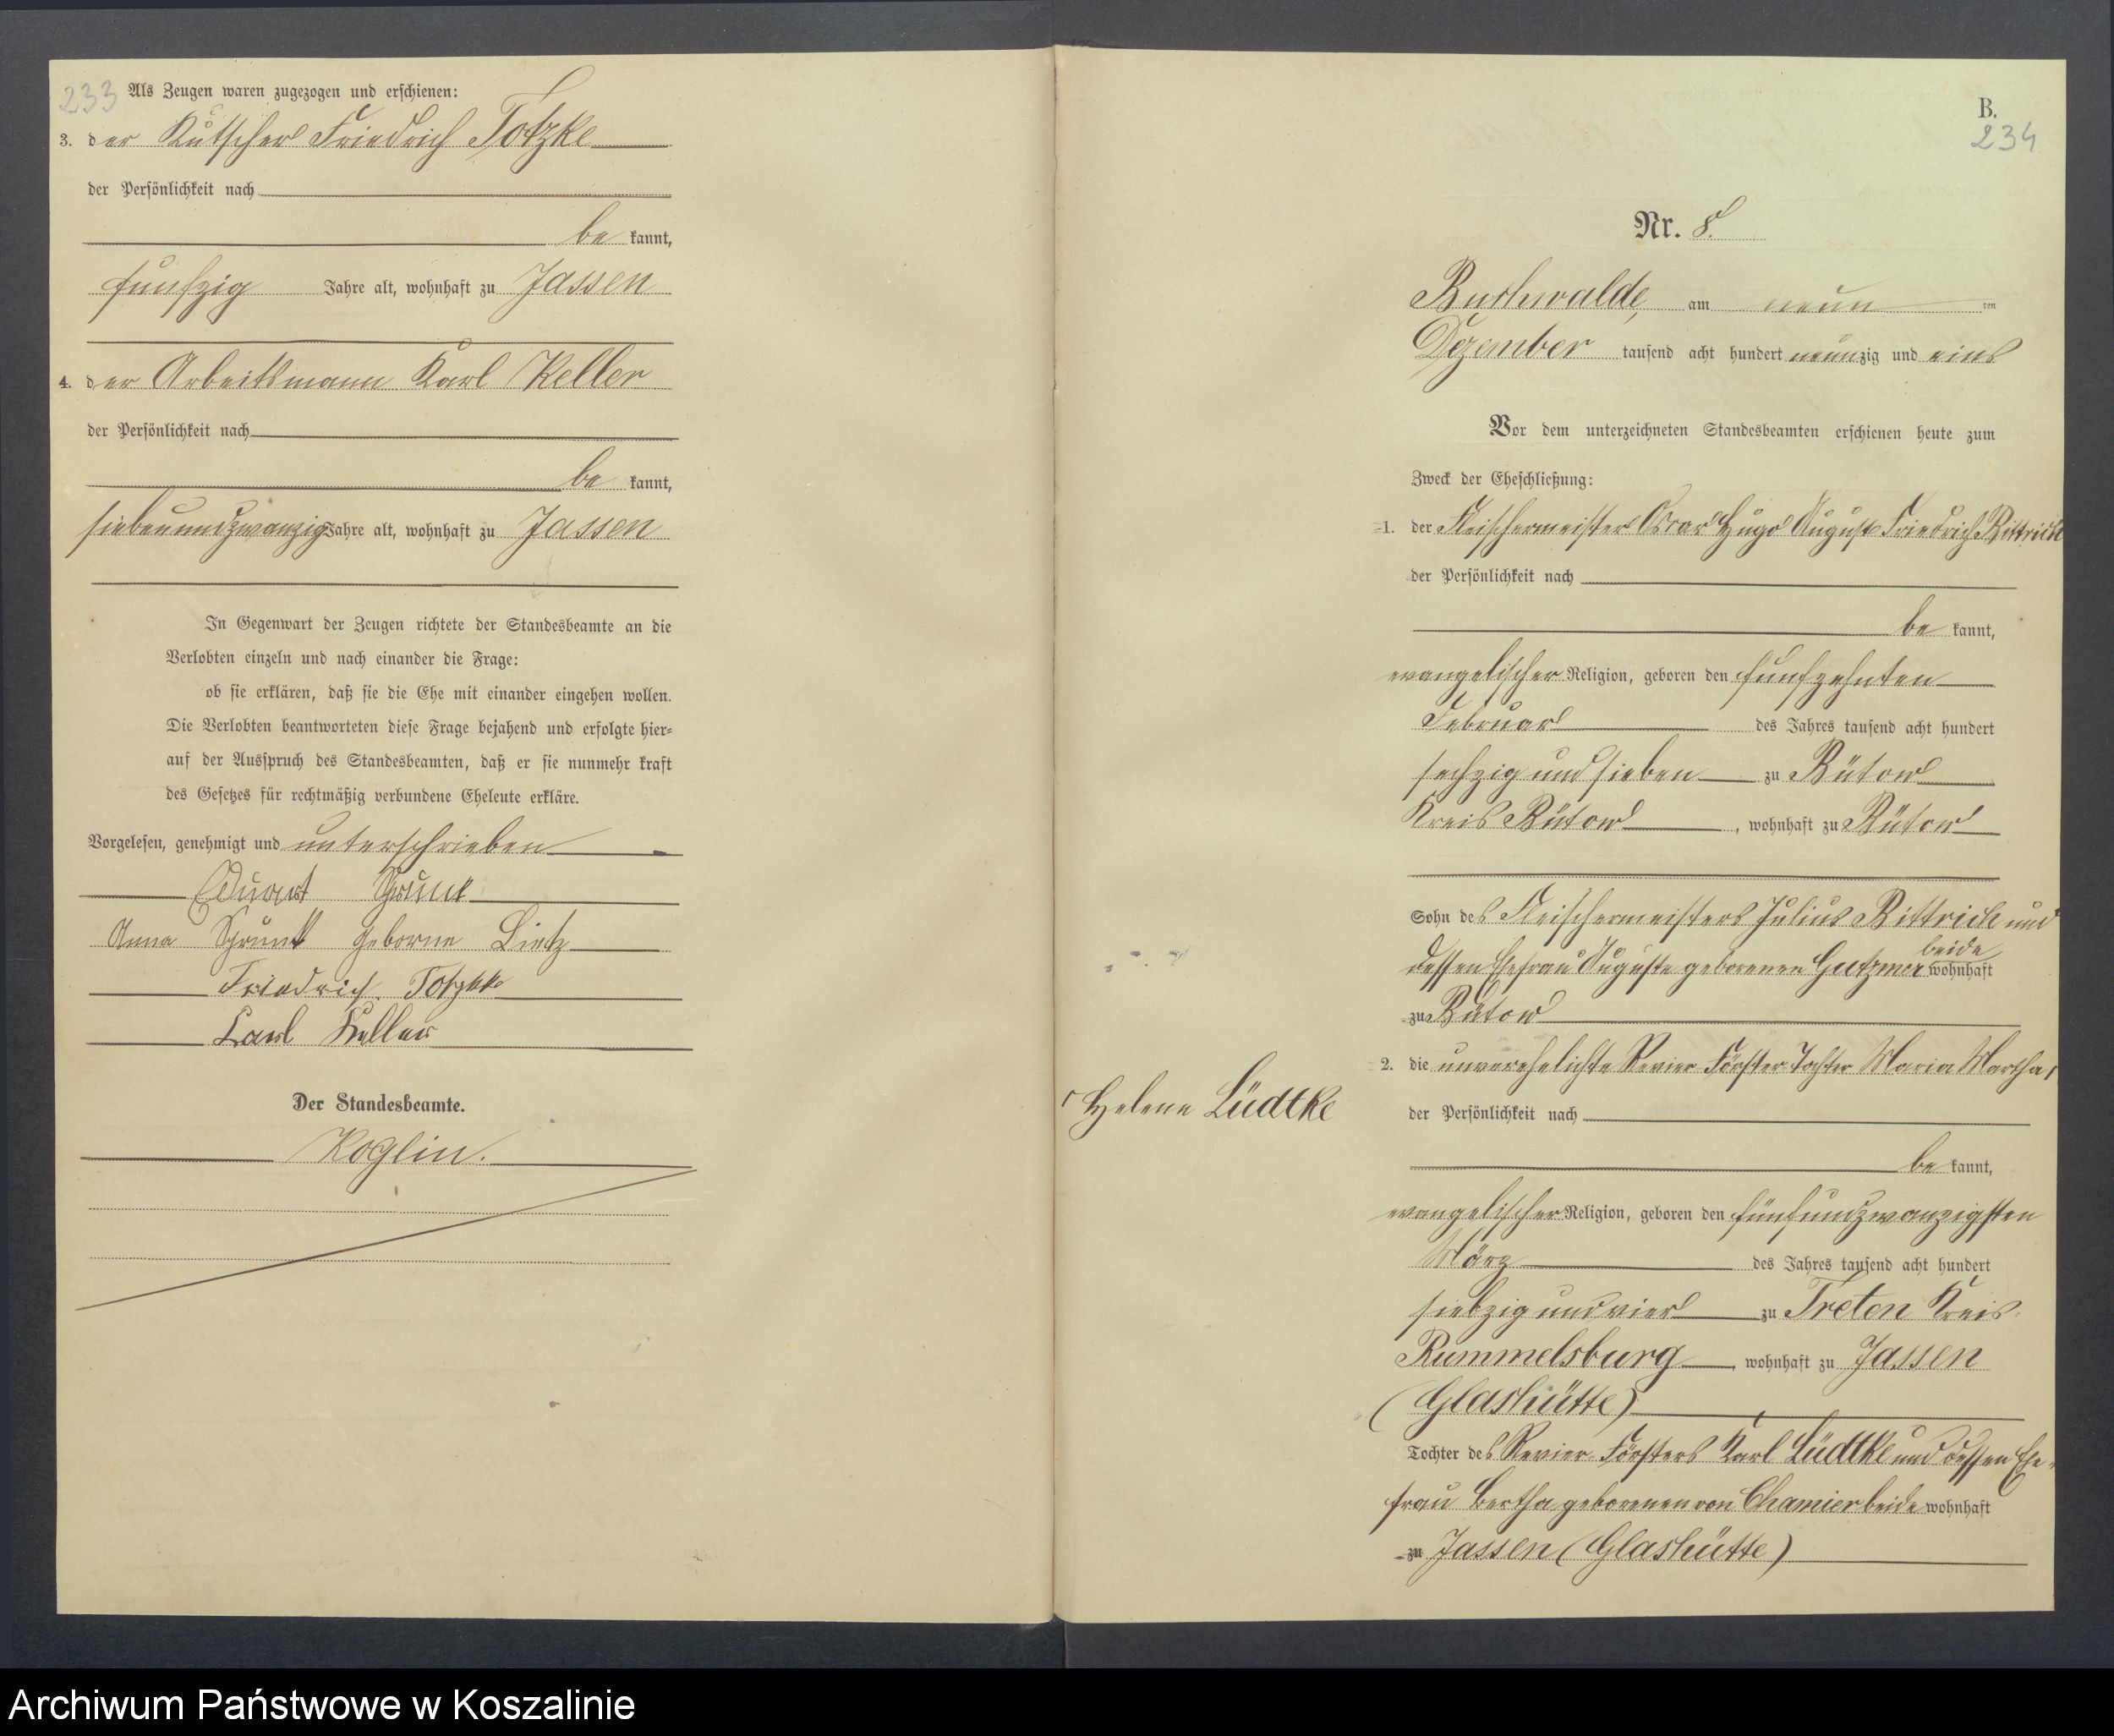 233
Als Zeugen waren zugezogen und erschienen:
3. der Kutscher Friedrich Totzke
der Persönlichkeit nach
be kannt,
funfzig Jahre alt, wohnhaft zu Jassen
4. der Arbeitsmann Karl Keller
der Persönlichkeit nach
be kannt,
siebenundzwanzig Jahre alt, wohnhaft zu Jassen
In Gegenwart der Zeugen richtete der Standesbeamte an die
Verlobten einzeln und nach einander die Frage:
ob sie erklären, daß sie die Ehe mit einander eingehen wollen.
Die Verlobten beantworteten diese Frage bejahend und erfolgte hier-
auf der Ausspruch des Standesbeamten, daß er sie nunmehr kraft
des Gesetzes für rechtmäßig verbundene Eheleute erkläre.
Vorgelesen, genehmigt und unterschrieben
Eduart
Anna geborne Lietz
Friedrich Totzke
Karl Keller
Der Standesbeamte.
Koglin.
B.
234
Nr. 8.
Buchwalde, am neun ten
Dezember tausend acht hundert neunzig und eins
Vor dem unterzeichneten Standesbeamten erschienen heute zum
Zweck der Eheschließung:
1. der Fleischermeister Oscar Hugo August Friedrich Bittrich
der Persönlichkeit nach
be kannt,
evangelischer Religion, geboren den funfzehnten
Februar des Jahres tausend acht hundert
sechzig und sieben zu Bütow
Kreis Bütow, wohnhaft zu Bütow
Sohn des Fleischermeisters Julius Bittrich und
dessen Ehefrau Auguste geborenen Gutzmer beide wohnhaft
zu Bütow
2. die unverehelichte Revier-Förster-Tochter Maria Martha
Helene Lüdtke
der Persönlichkeit nach
be kannt,
evangelischer Religion, geboren den fünfundzwanzigsten
März des Jahres tausend acht hundert
siebzig und vier zu Treten Kreis
Rummelsburg, wohnhaft zu Jassen
(Glashütte)
Tochter des Revier-Försters Karl Lüdtke und dessen Ehe-
frau Bertha geborenen von Chamier beide wohnhaft
zu Jassen (Glashütte)
Archiwum Państwowe w Koszalinie